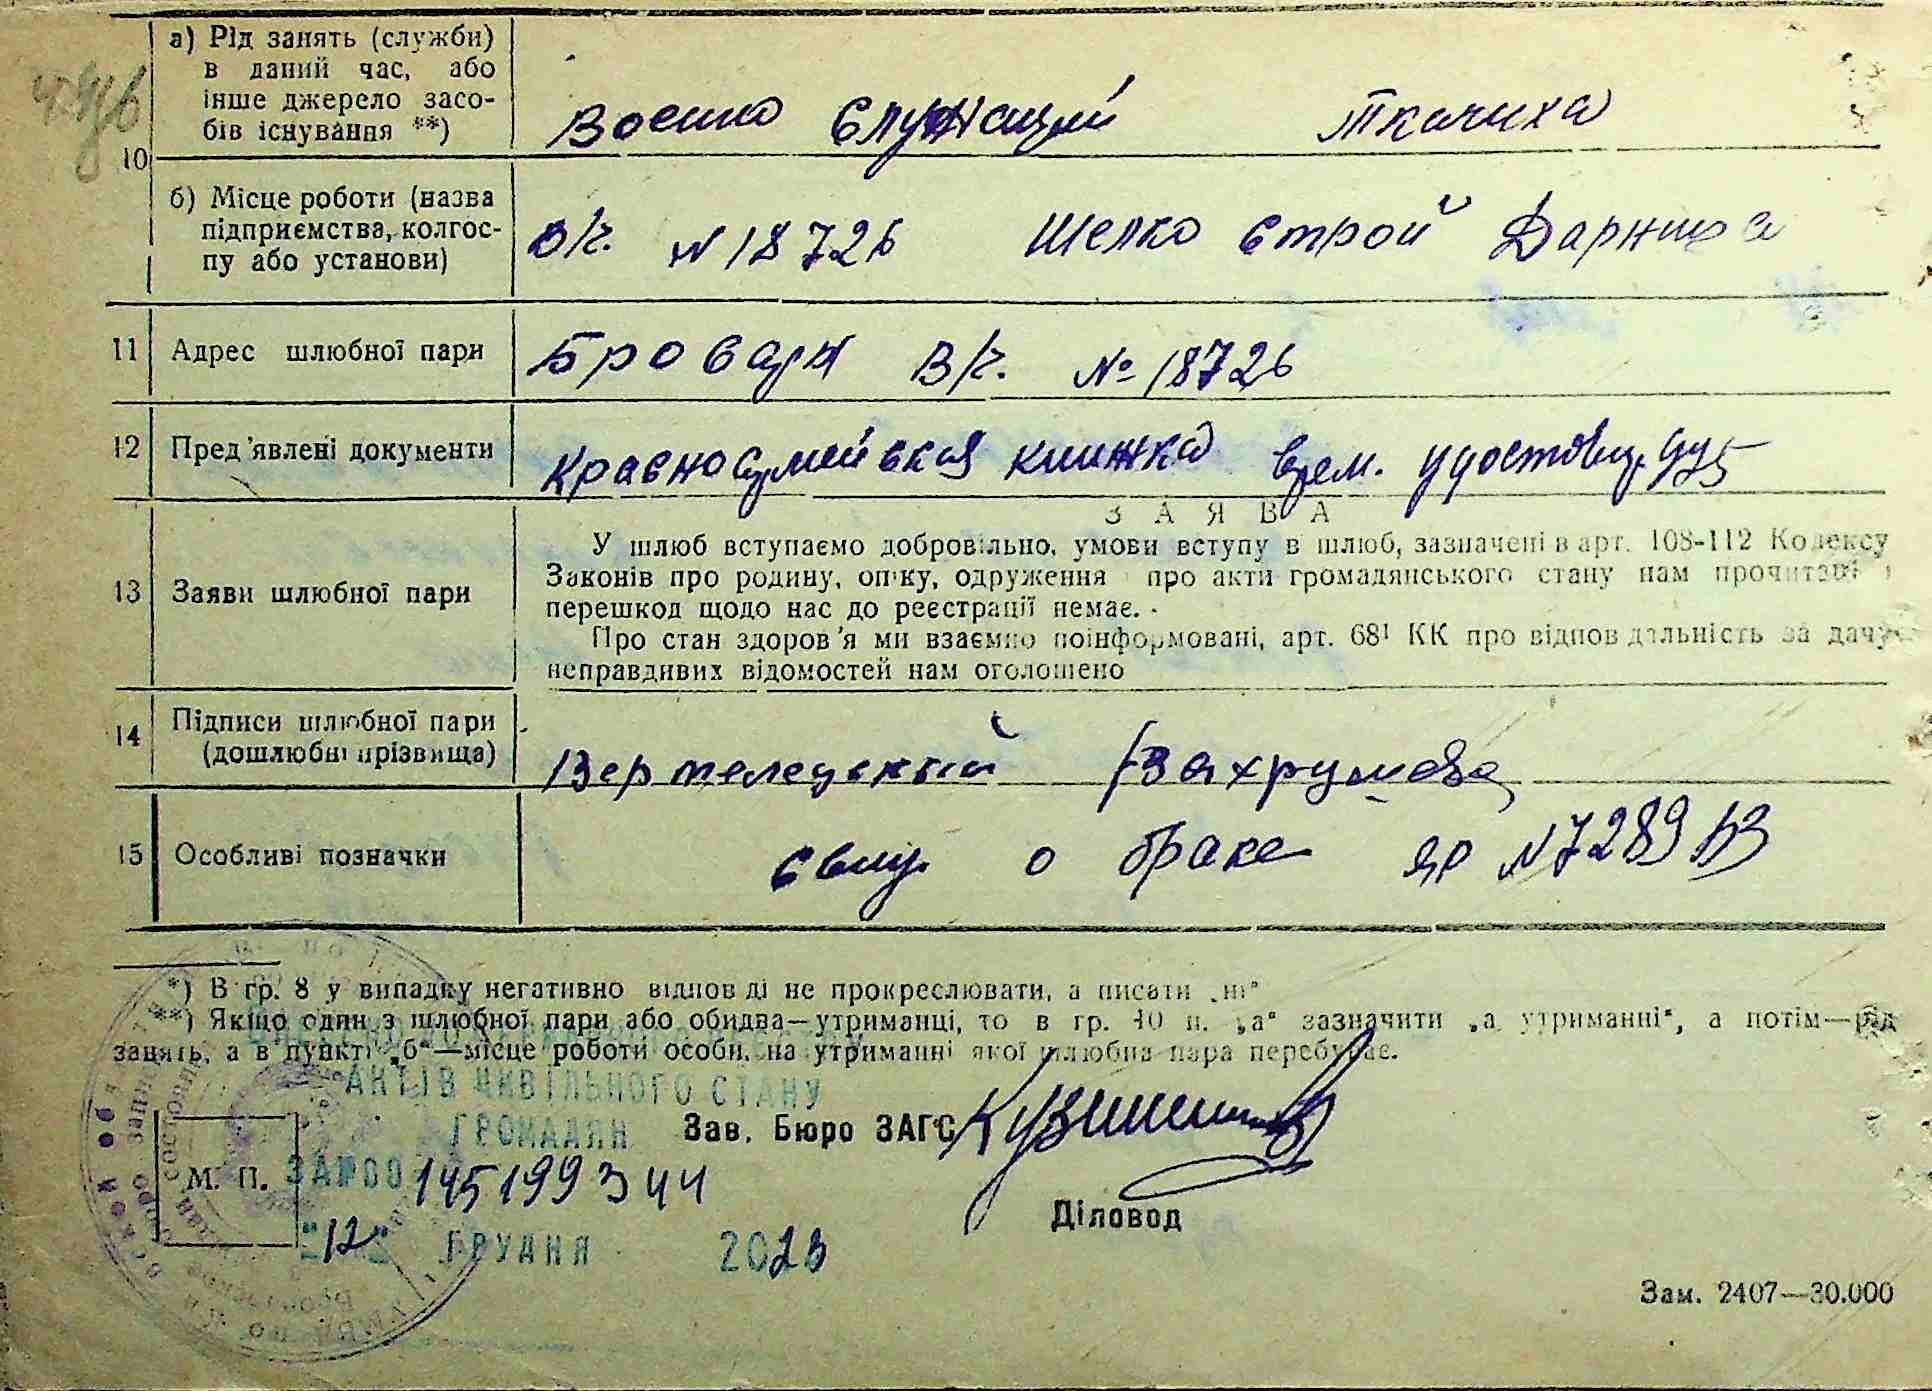 а) Рід занять (служби)
в даний час, або
інше джерело засо-
бів існування **)
Военно служащий Ткачиха
10
б) Місце роботи (назва
підприємства, колгос-
пу або установи)
В/ч. N 18726 Шелко строй Дарница
11 Адрес шлюбної пари
Бровары В/ч. № 18726
12 Пред'явлені документи
Красноармейская книжка врем. удостовер.
ЗАЯВА
13 Заяви шлюбної пари
У шлюб вступаємо добровільно, умови вступу в шлюб, зазначені в арт. 108-112 Кодексу
Законів про родину, опіку, одруження про акти громадянського стану нам прочитані і
перешкод щодо нас до реєстрації немає.
Про стан здоров'я ми взаємно поінформовані, арт. 68¹ КК про відповідальність за дачу
неправдивих відомостей нам оголошено
14 Підписи шлюбної пари
(дошлюбні прізвища)
Вертелецький
15 Особливі позначки
о браке N 7289
*) В гр. 8 у випадку негативно відповіді не прокреслювати, а писати „ні“
**) Якщо один з шлюбної пари або обидва—утриманці, то в гр. 10 п. „а“ зазначити „а утриманні“, а потім—рід
занять, а в пункті „б“—місце роботи особи, на утриманні якої шлюбна пара перебуває.
АКТІВ ЦИВІЛЬНОГО СТАНУ
ГРОМАДЯН
Зав. Бюро ЗАГС
М. П.
14519934ч
Діловод
"12" ГРУДНЯ 2023
Зам. 2407—30.000